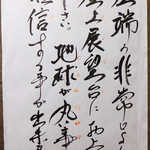 端の非常に
屋上展望台に
下さい。地球が丸い事
信する事が出来ま